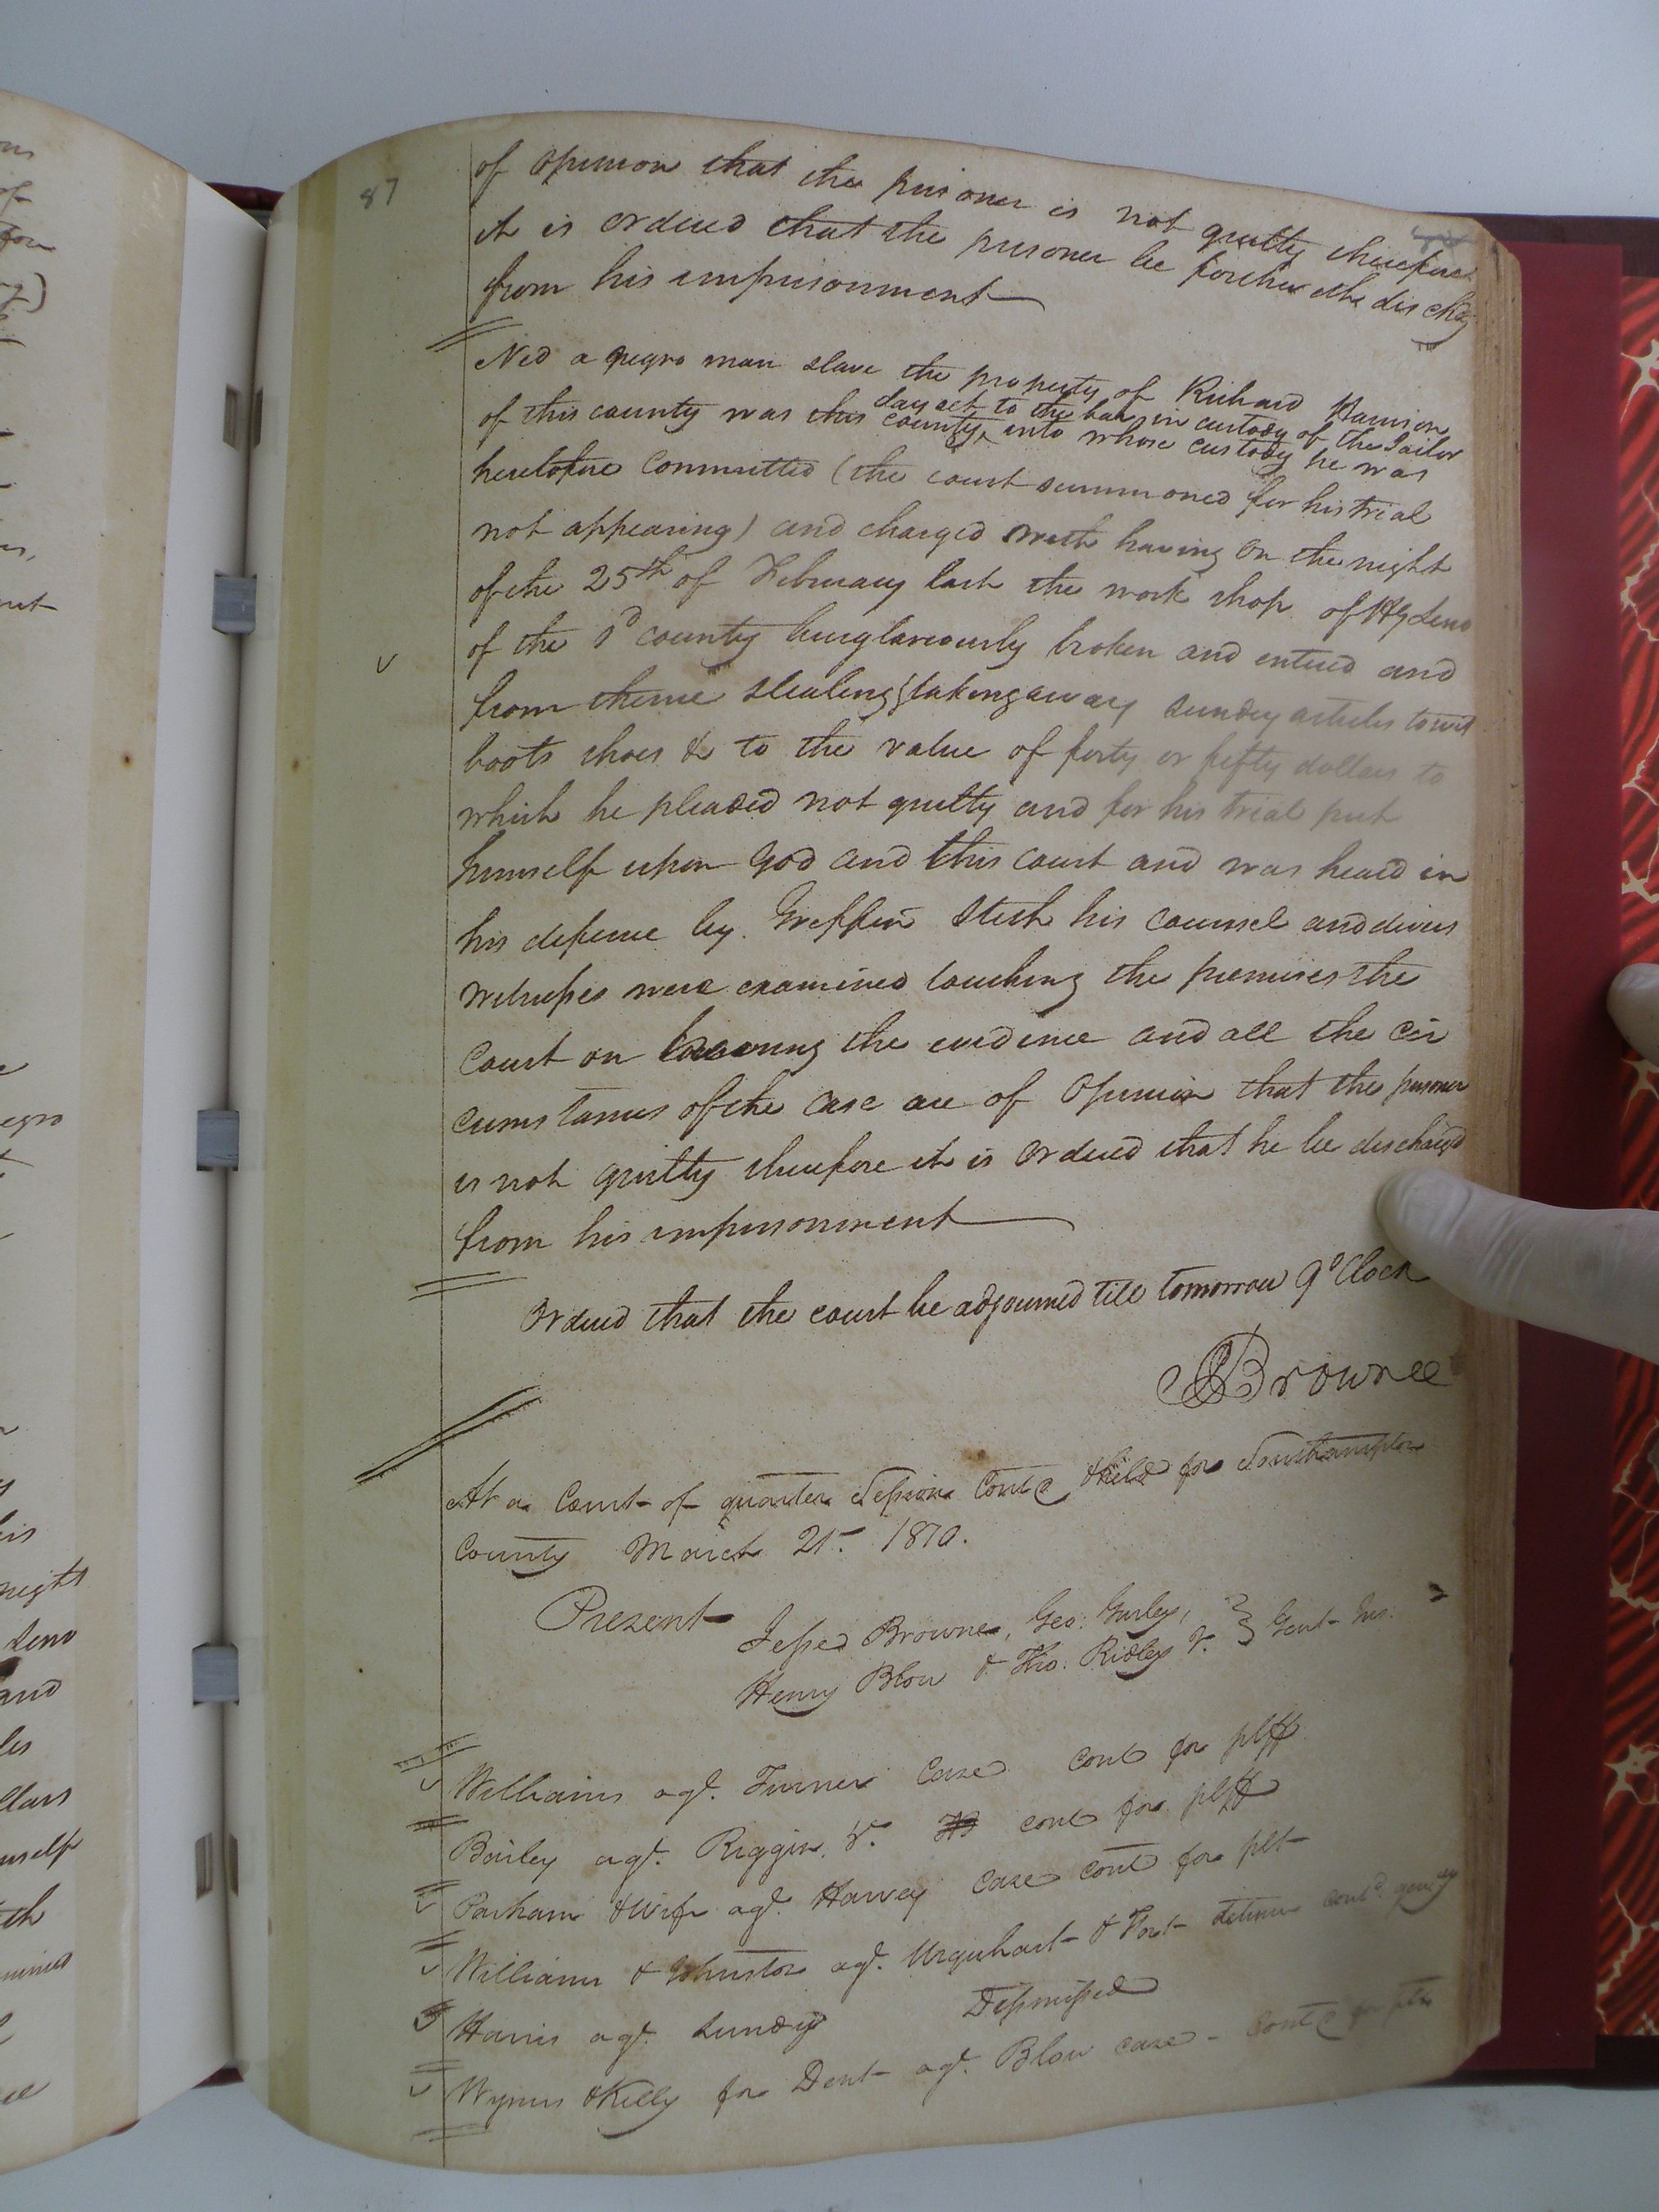 87
of opinion that the prisoner is not guilty therefore
it is ordered that the prisoner be forthwith dischg
from his imprisonment
Ned a negro man slave the property of Richard Harrison
of this county was this day set to the bar in custody of the Jailor
county, into whose custody he was
heretofore Committed (the court summoned for his trial
not appearing) and charged with having on the night
of the 25th of February last the work shop of
of the sd county burglariously broken and entered and
from thence stealing & taking away sundry articles towit
boots shoes &c to the value of forty or fifty dollars to
which he pleaded not guilty and for his trial put
himself upon God and this court and was heard in
his defence by Griffin Stith his counsel and divers
witnesses were examined touching the premises the
Court on hearing the evidence and all the cir
cumstances of the case are of opinion that the prisoner
is not guilty therefore it is ordered that he be discharged
from his imprisonment
Ordered that the court be adjourned till tomorrow 9 oClock
Browne
At a Court of quarter Session Cont'd & held for Southampton
County March 21st. 1810.
Present Jesse Browne, Geo: Gurley,
Henry Blow & Tho: Ridley Jr. } Gent Jus:
Williams agt. Turner Case Cont for plff
Bailey agt. Riggin, Jr. cont for plff
Parham & Wife agt. Harvey Case Cont for plt
Williams & Johnston agt. Urquhart & Fort detinue contd. genlly
Harris agt. Lundy Dismissed
Wynns & Kelly for Dent agt. Blow case - Contd for plts